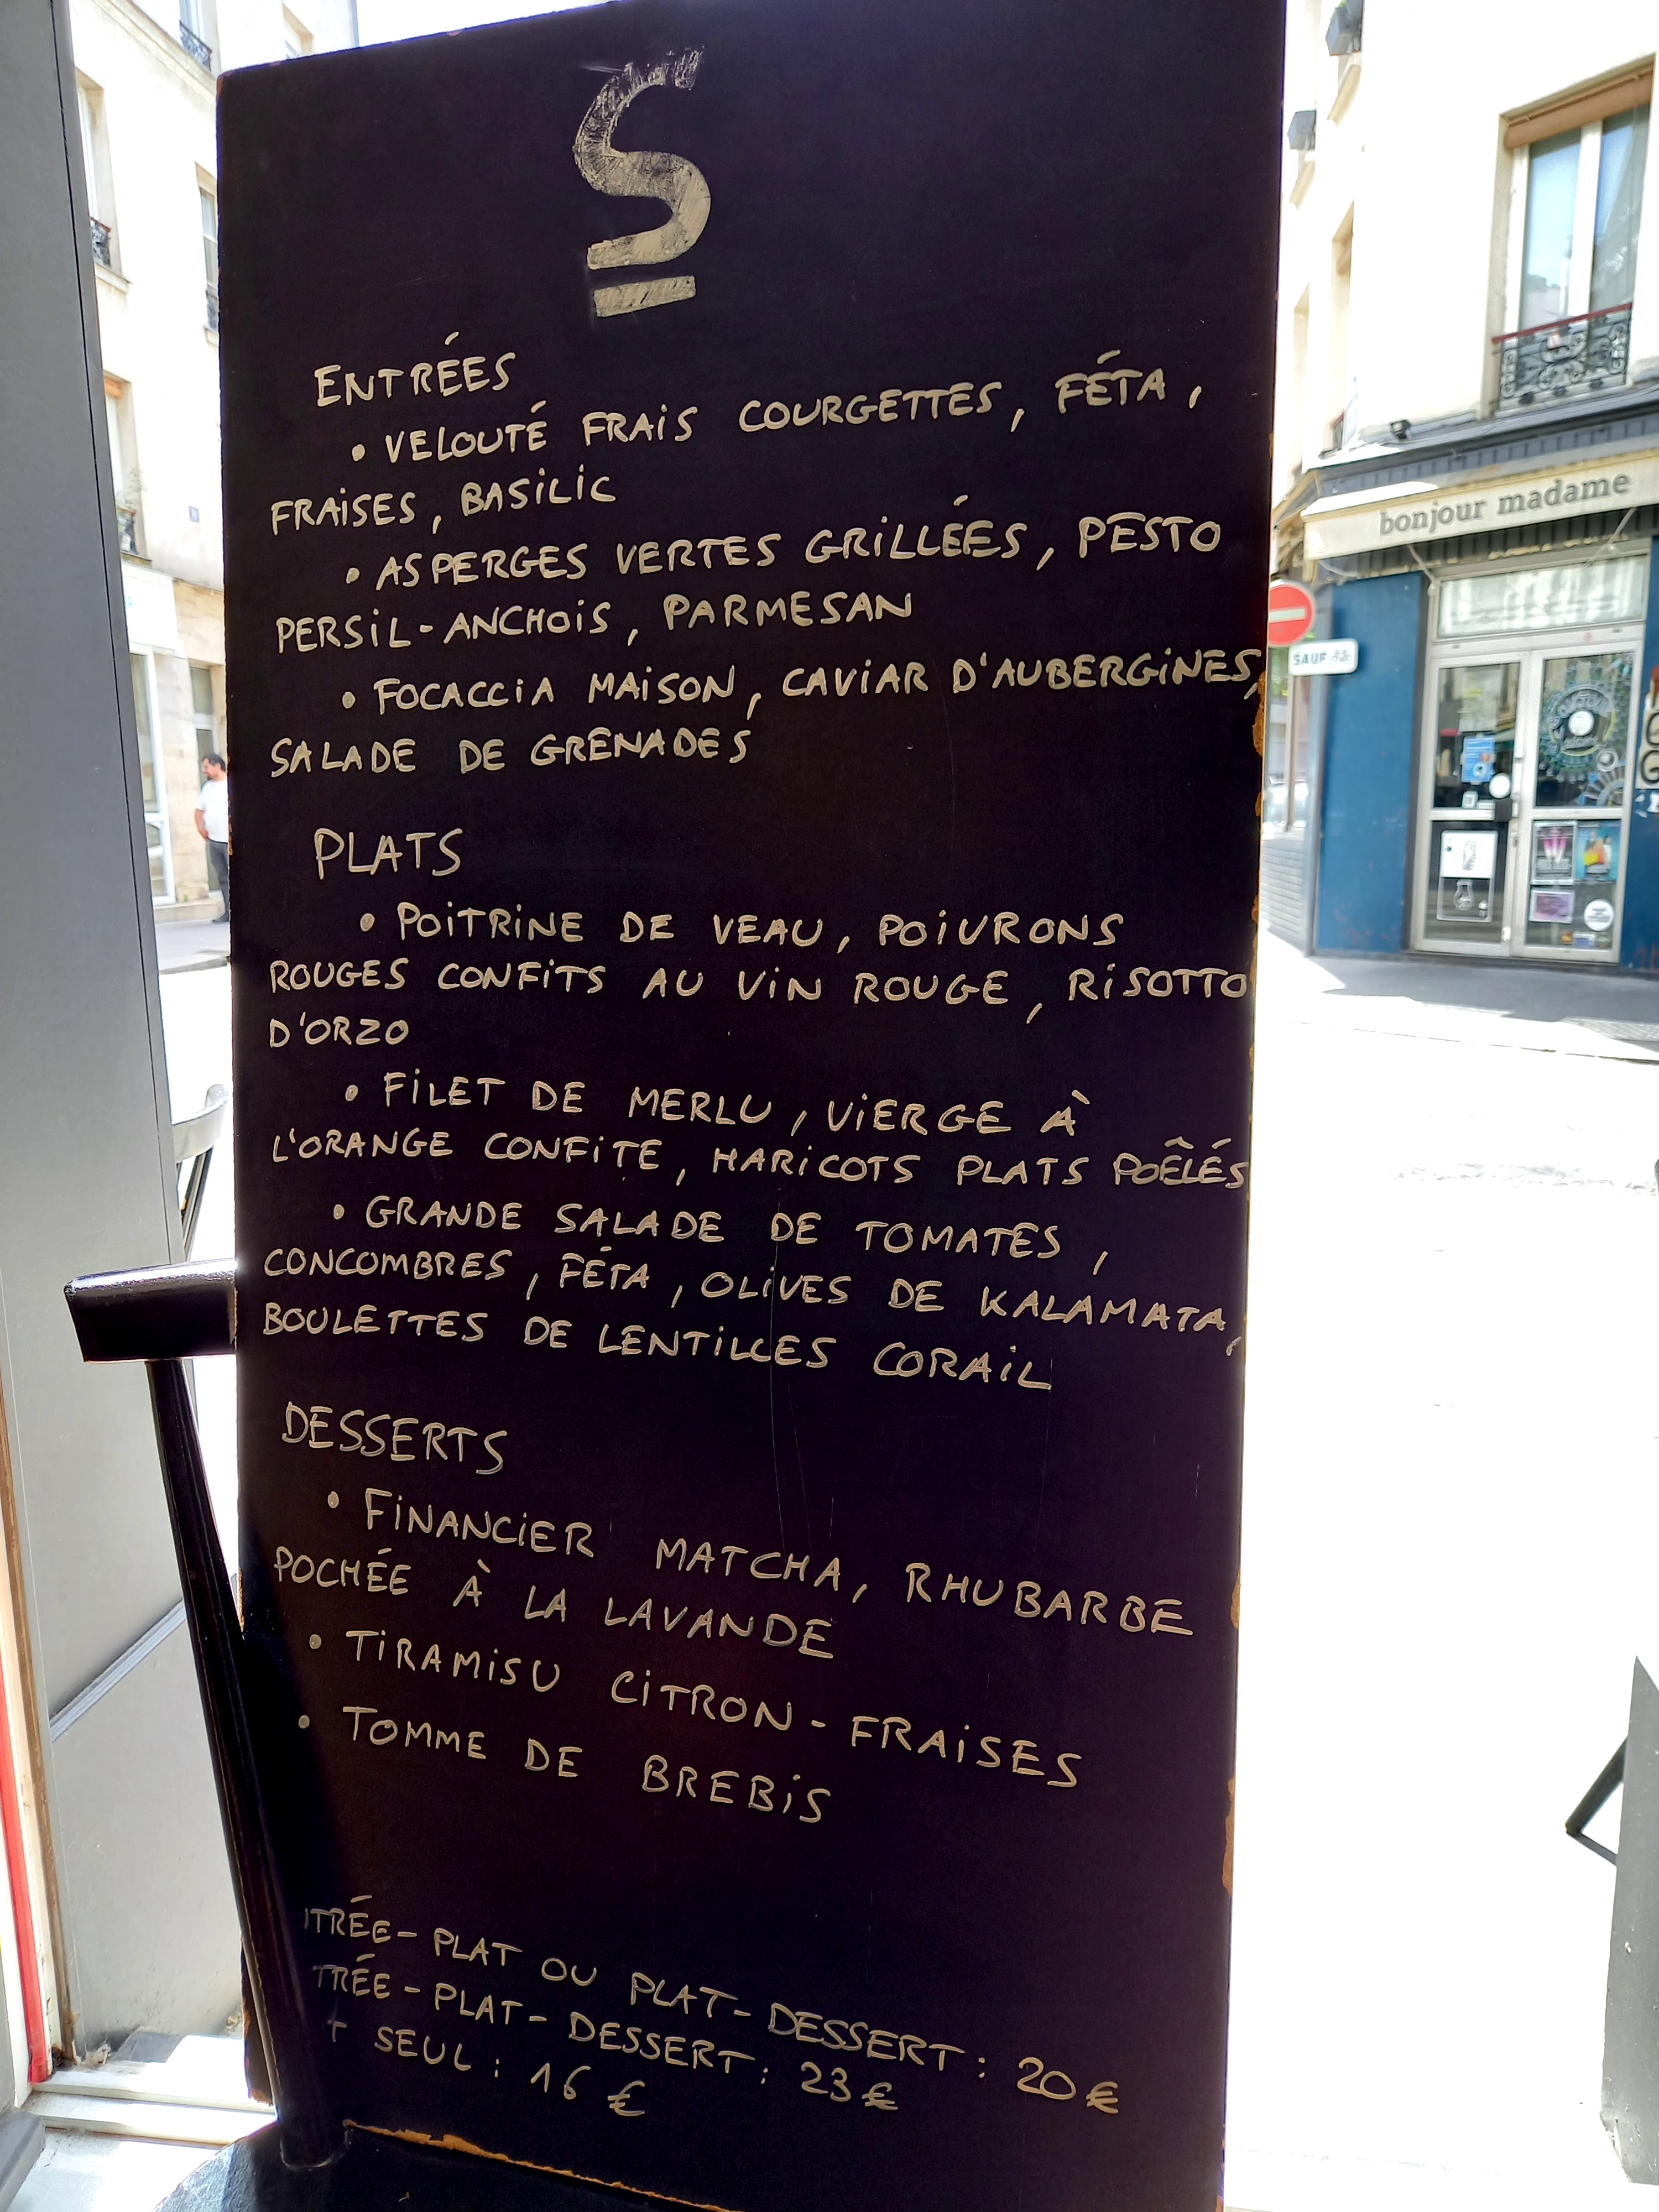 S
ENTRÉES
• VELOUTÉ FRAIS COURGETTES, FÉTA,
FRAISES, BASILIC
• ASPERGES VERTES GRILLÉES, PESTO
PERSIL-ANCHOIS, PARMESAN
• FOCACCIA MAISON, CAVIAR D'AUBERGINES,
SALADE DE GRENADES
PLATS
• POITRINE DE VEAU, POIVRONS
ROUGES CONFITS AU VIN ROUGE, RISOTTO
D'ORZO
• FILET DE MERLU, VIERGE À
L'ORANGE CONFITE, HARICOTS PLATS POÊLÉS
• GRANDE SALADE DE TOMATES,
CONCOMBRES, FÉTA, OLIVES DE KALAMATA,
BOULETTES DE LENTILLES CORAIL
DESSERTS
• FINANCIER MATCHA, RHUBARBE
POCHÉE À LA LAVANDE
• TIRAMISU CITRON-FRAISES
• TOMME DE BREBIS
TRÉE-PLAT OU PLAT-DESSERT: 20€
TRÉE-PLAT-DESSERT: 23€
T SEUL: 16€
bonjour madame
SAUF